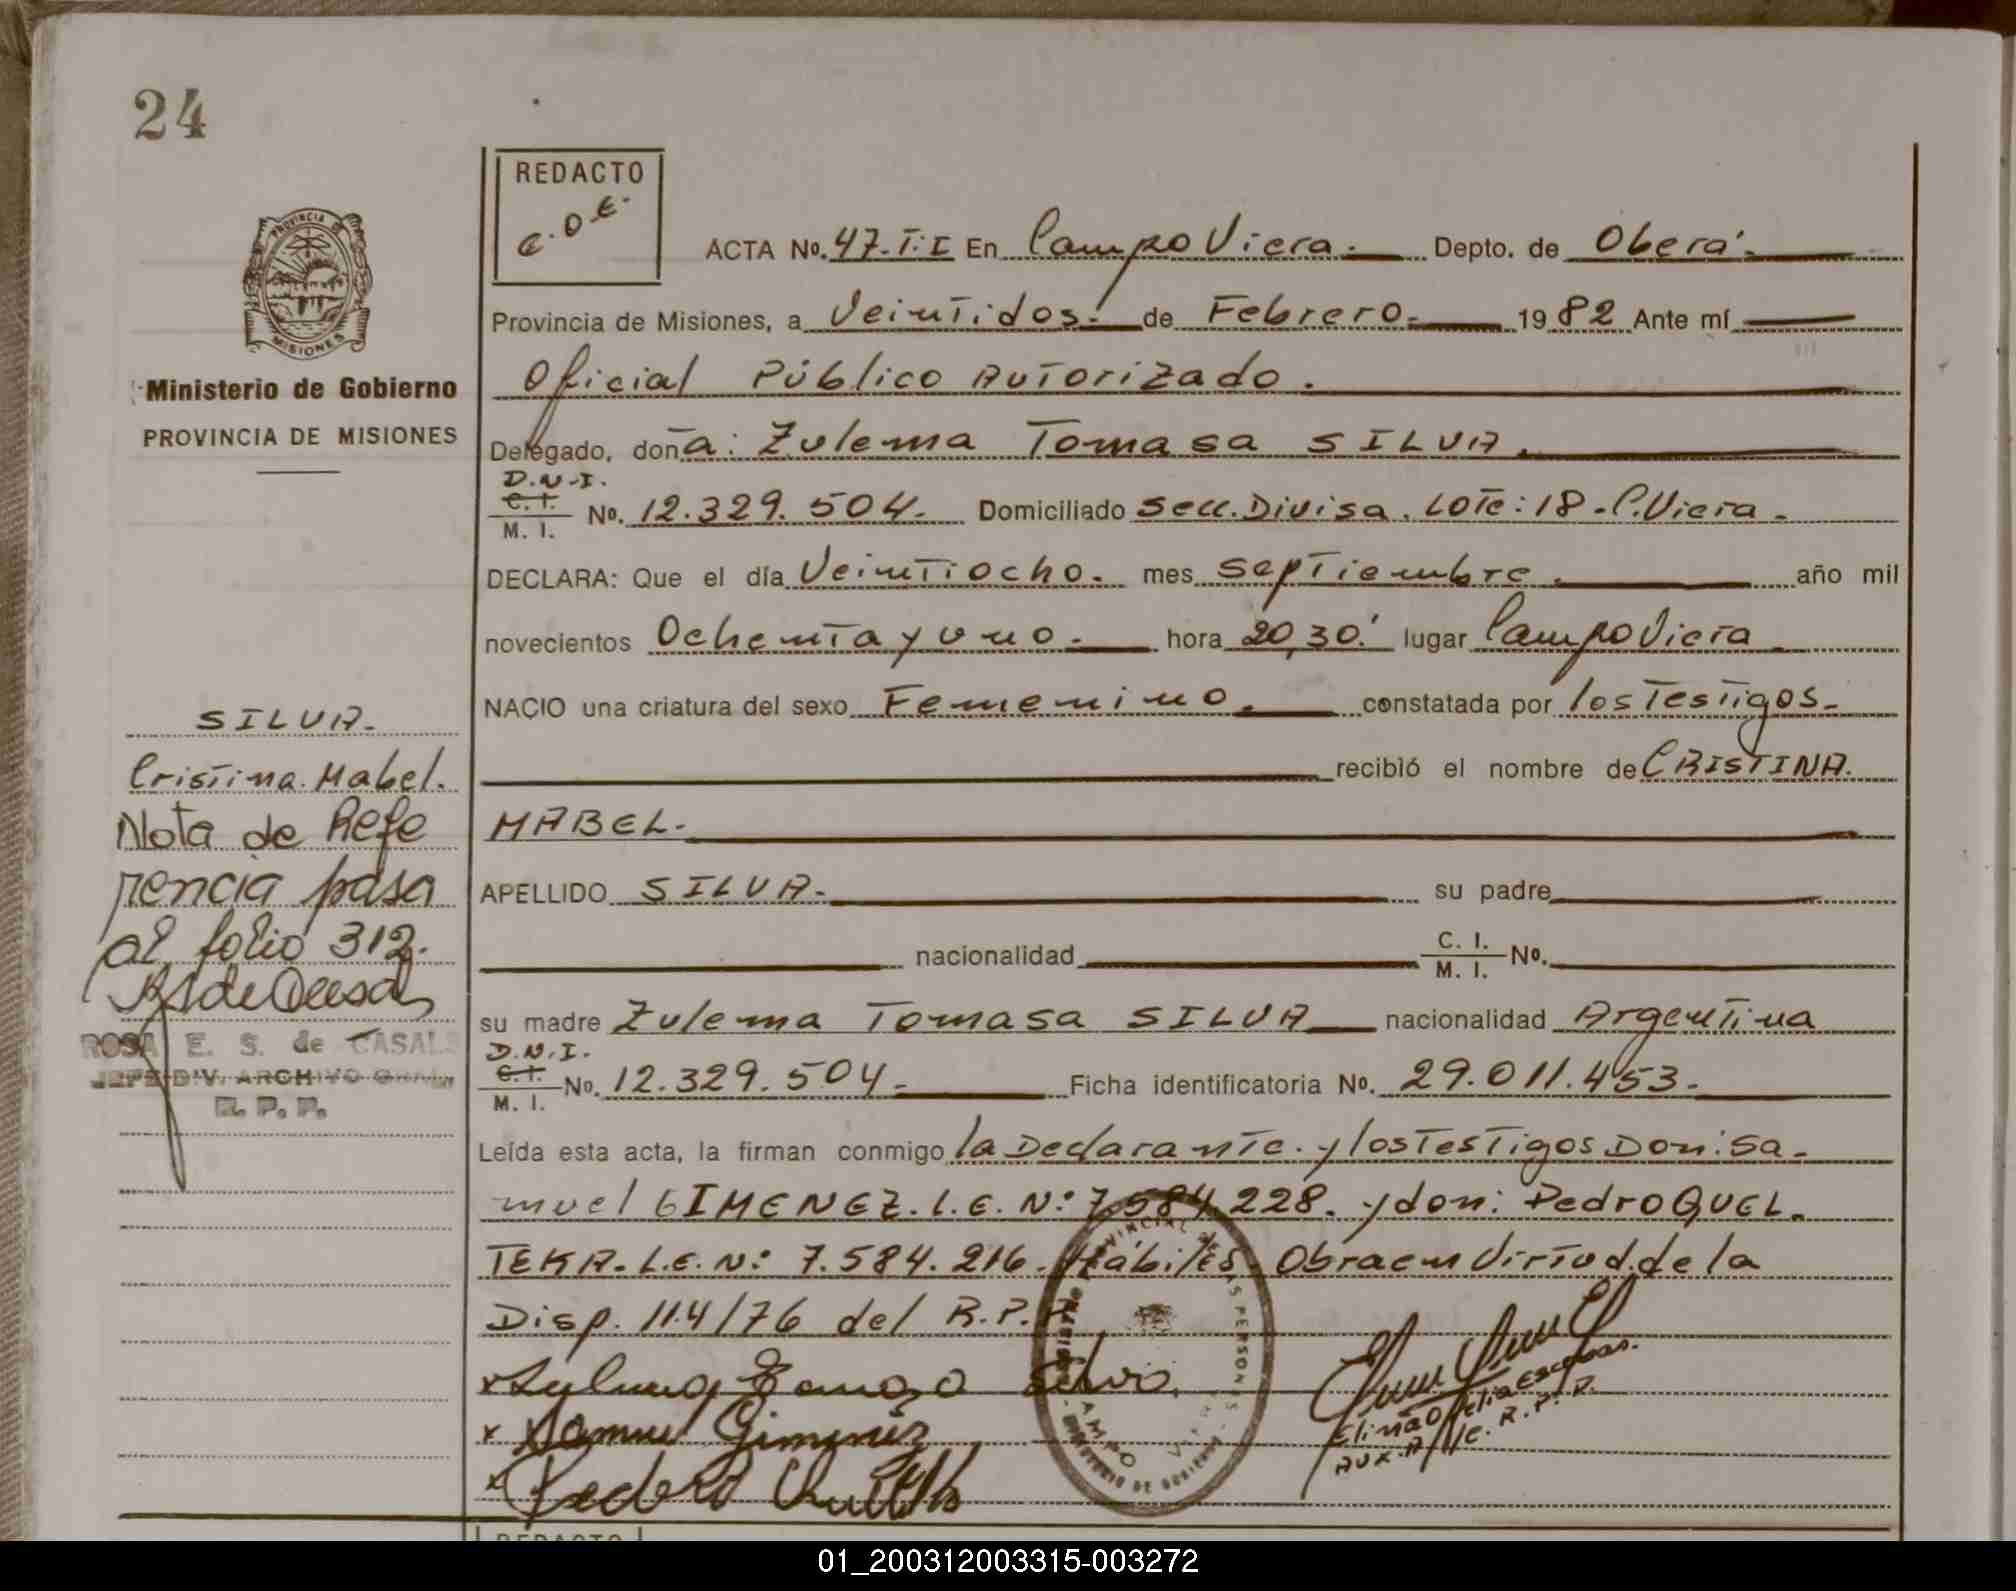 24
REDACTO
E.O.E.
ACTA No. 47.T:I En Campo Viera.- Depto. de Oberá.-
Provincia de Misiones, a Veintidos.- de Febrero.- 1982 Ante mí
Oficial Público Autorizado.
Delegado, doña: Zulema Tomasa SILVA.
D.N.I.
C. I.
M. I. No. 12.329.504.- Domiciliado Secc. Divisa. Lote: 18.-C.Viera.-
DECLARA: Que el día Veintiocho.- mes septiembre.- año mil
novecientos Ochenta y uno.- hora 20,30.' lugar Campo Viera.-
NACIO una criatura del sexo Femenino.- constatada por los Testigos.-
recibió el nombre de CRISTINA.
MABEL.-
APELLIDO SILVA.- su padre
nacionalidad C. I.
M. I. No.
su madre Zulema Tomasa SILVA nacionalidad Argentina
D.N.I.
C. I.
M. I. No. 12.329.504.- Ficha identificatoria No. 29.011.453.-
Leída esta acta, la firman conmigo la Declarante.y los Testigos Don: Sa-
muel GIMENEZ. L.E. N: 7.584.228. y don: Pedro QUEL-
TEKA. L.E. N: 7.584.216. Hábiles. Obra en Virtud.de la
Disp. 114/76 del R.P.P.
Samuel Gimenez
Pedro
AUX. R.P.P.
PROVINCIA DE
MISIONES
Ministerio de Gobierno
PROVINCIA DE MISIONES
SILVA.-
Cristina. Mabel.
Nota de Refe
rencia pasa
al folio 312.
ROSA E. S. de CASALS
JEFE DIV. ARCHIVO GRAL.
R. P. P.
REDACTO
01_200312003315-003272